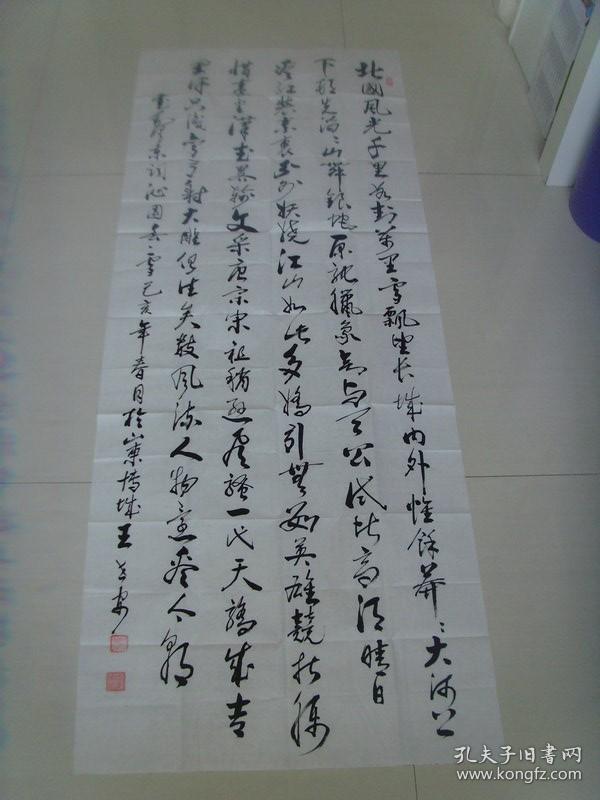 北國風光千里冰封萬里雪飄望长城内外惟餘莽〻大河上
下頓失滔〻山舞銀蛇原馳臘象欲与天公试比高须晴日
看红装素裹分外妖娆江山如此多嬌引無数英雄競折腰
惜秦皇漢武略输文采唐宗宋祖稍逊风骚一代天驕成吉
思汗只识弯弓射大雕俱往矣数风流人物还看今朝
毛泽东词沁园春雪己亥年春月於 城王
孔夫子旧书网
www.kongfz.com